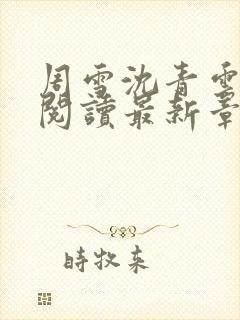 周雪沈青雲
閱讀最新章
時牧来